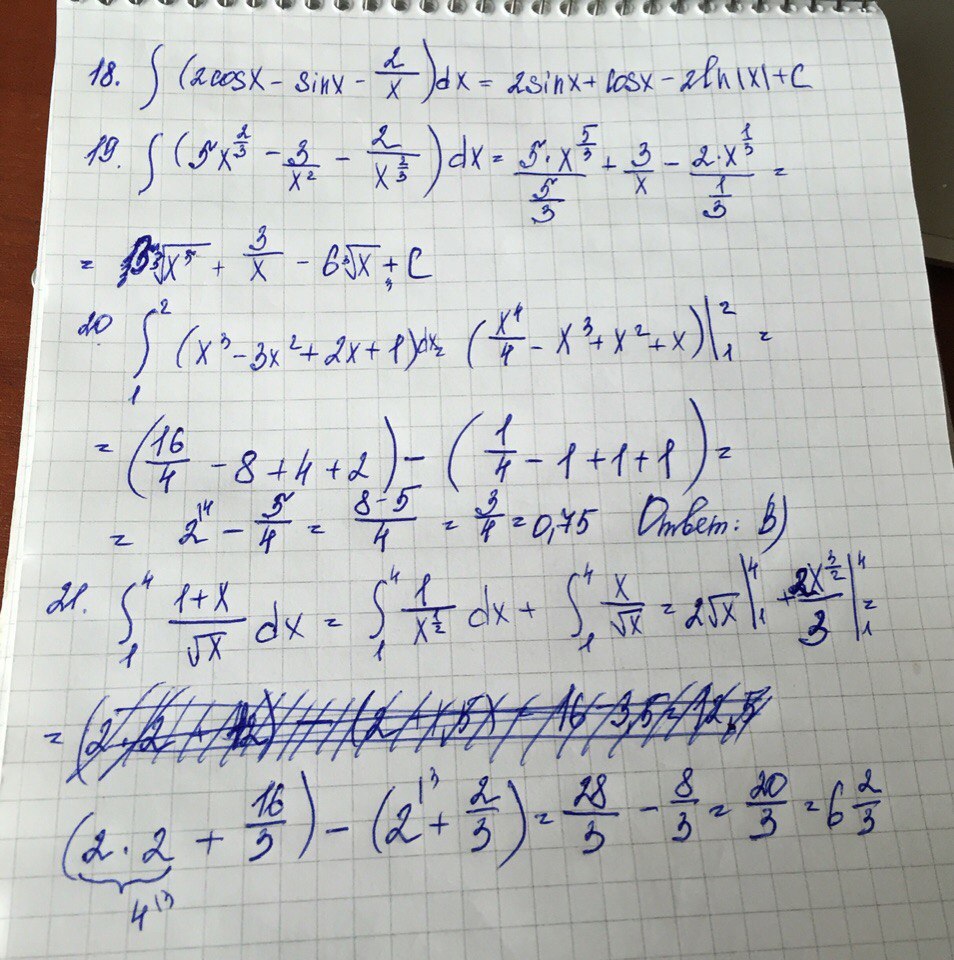 18. ∫ (2cosx - sinx - 2/x)dx = 2sinx + cosx - 2ln|x| + C
19. ∫ (5x^(2/3) - 3/x² - 2/x^(2/3)) dx = 5·x^(5/3)/(5/3) + 3/x - 2·x^(1/3)/(1/3) =
= ∛x⁵ + 3/x - 6∛x + C
20. ∫₁² (x³ - 3x² + 2x + 1)dx = (x⁴/4 - x³ + x² + x)|₁² =
= (16/4 - 8 + 4 + 2) - (1/4 - 1 + 1 + 1) =
= 2^(14 - 5/4 = (8-5)/4 = 3/4 = 0,75 Ответ: B)
21. ∫₁⁴ (1+x)/√x dx = ∫₁⁴ 1/x^(1/2) dx + ∫₁⁴ x/√x = 2√x|₁⁴ + 2x^(3/2)/3|₁⁴ =
=
(2·2 + 16/3) - (2^(13 + 2/3) = 28/3 - 8/3 = 20/3 = 6 2/3
4^(13